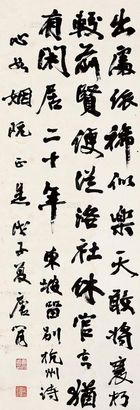 出處依稀似樂天敢將衰朽
較前賢便從洛社休官去猶
有閑居二十年　東坡留別杭州詩
心如姻阮正是戊子夏唐